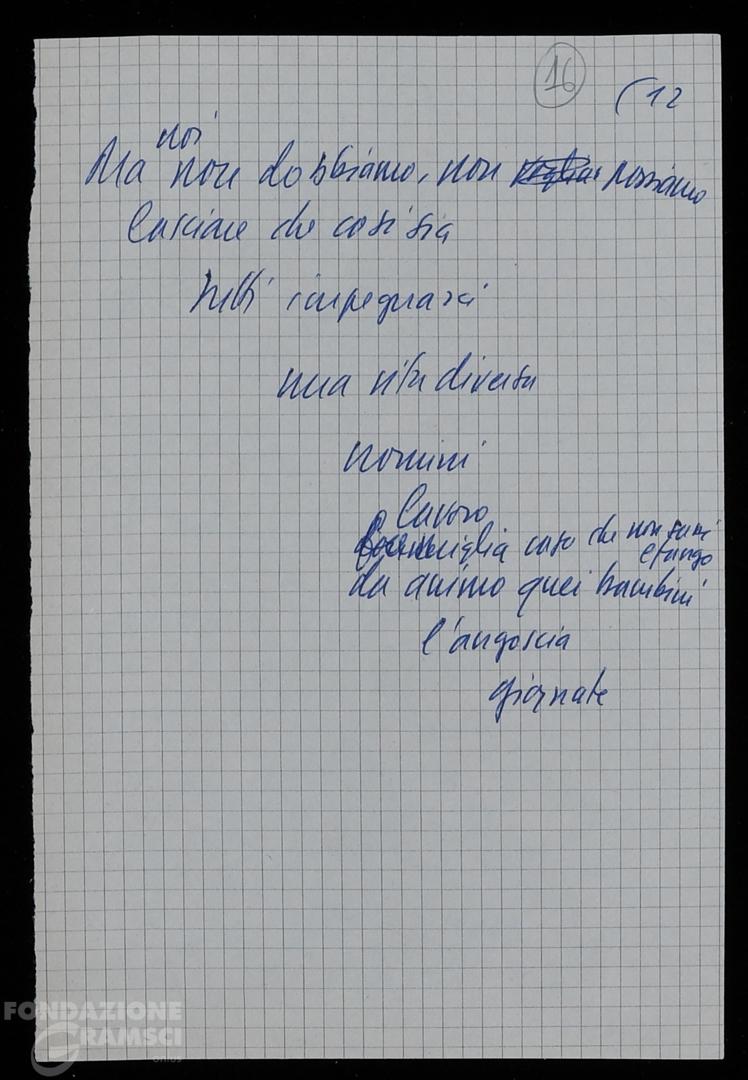 16
(12
noi
Ma non dobbiamo, non possiamo
lasciare che così sia
Tutti impegnarci
una vita diversa
uomini
lavoro
caso che non
da animo quei bambini
l'angoscia
giornate
FONDAZIONE
GRAMSCI
onlus